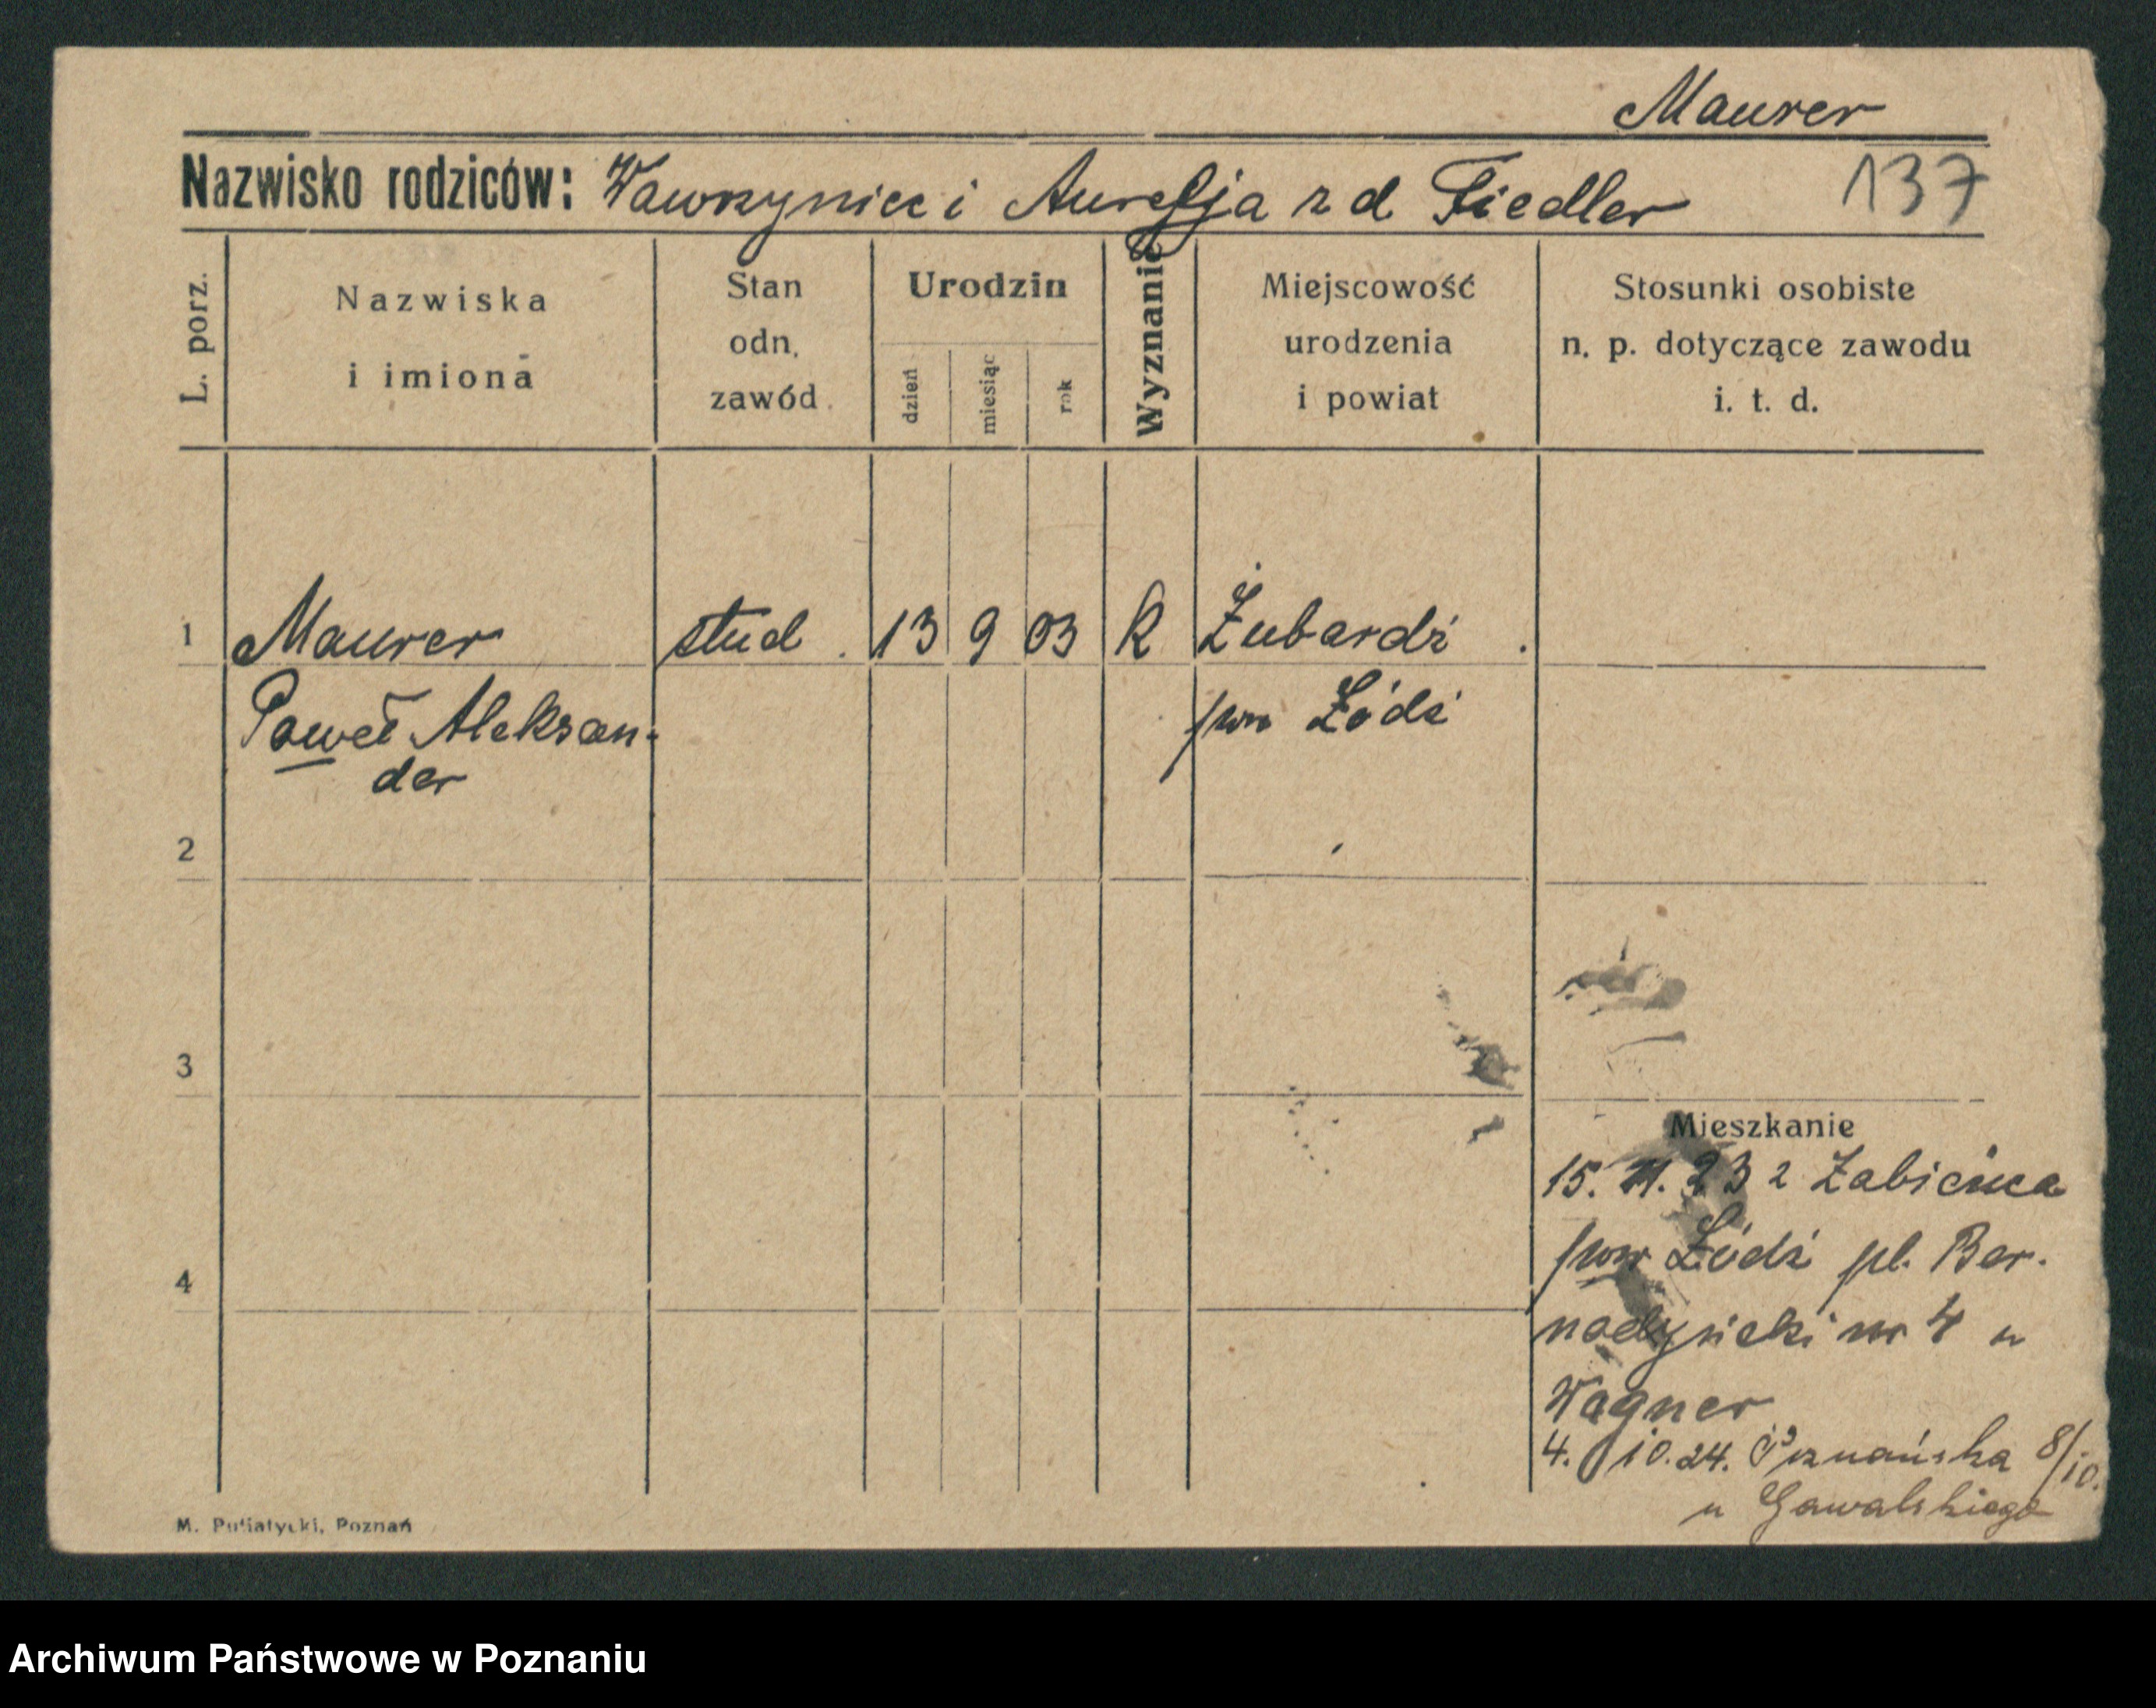 Maurer
Nazwisko rodziców: Wawrzyniec i Aurelja z d Fiedler 137
L. porz.
Nazwiska
i imiona
Stan
odn.
zawód
Urodzin
dzień
miesiąc
rok
Wyznanie
Miejscowość
urodzenia
i powiat
Stosunki osobiste
n. p. dotyczące zawodu
i. t. d.
1 Maurer stud. 13 9 03 K Żubardź
Paweł Aleksan-
der
pow Łódź
2
3
4
Mieszkanie
15. 11. 23 z Żabieńca
pow Łódź pl. Ber-
nadyński nr 4 u
Wagner
4. 10. 24. Poznańska 8/10.
u Gawalskiego
M. Putiatycki, Poznań
Archiwum Państwowe w Poznaniu